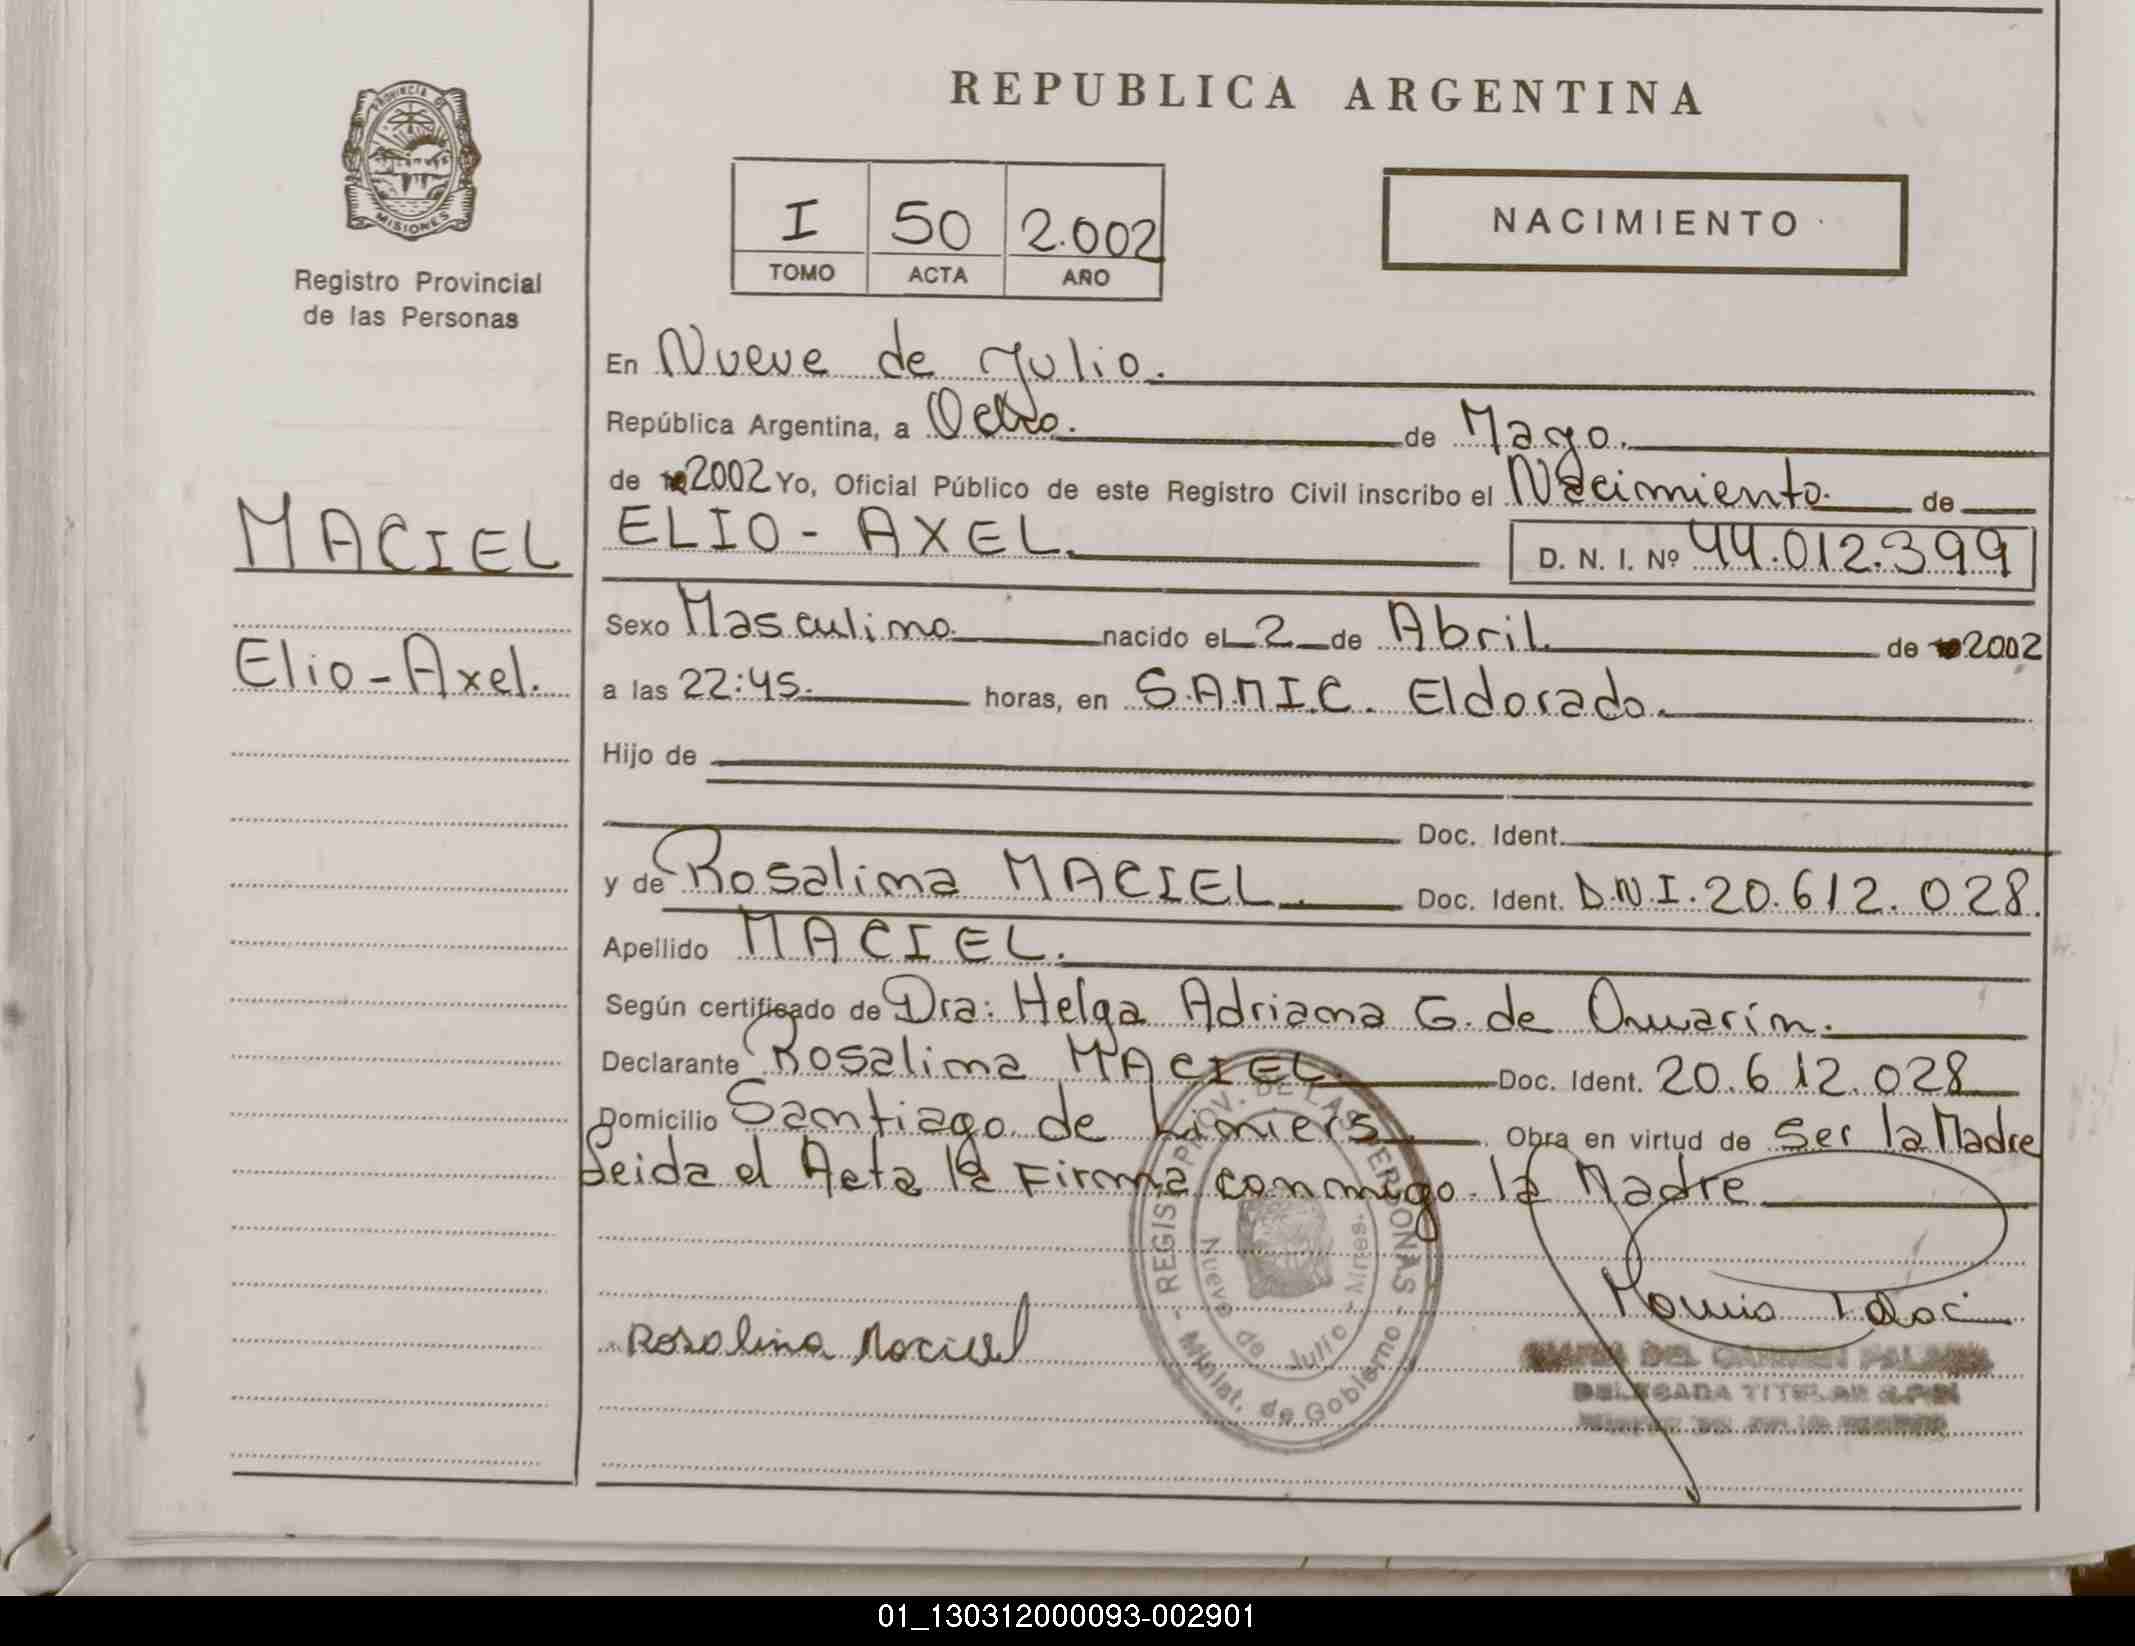 REPUBLICA ARGENTINA
PROVINCIA DE
MISIONES
Registro Provincial
de las Personas
I 50 2.002
TOMO ACTA AÑO
NACIMIENTO
En Nueve de Julio.
República Argentina, a Ocho. de Mayo.
de 2002 Yo, Oficial Público de este Registro Civil inscribo el Nacimiento. de
MACIEL
ELIO - AXEL.
D. N. I. Nº 44.012.399
Sexo Masculino. nacido el 2 de Abril. de 2002
Elio - Axel.
a las 22:45. horas, en S.A.M.I.C. Eldorado.
Hijo de
Doc. Ident.
y de Rosalina MACIEL. Doc. Ident. D.N.I. 20.612.028.
Apellido MACIEL.
Según certificado de Dra: Helga Adriana G. de
Declarante Rosalina MACIEL. Doc. Ident. 20.612.028
Domicilio Santiago de Liniers Obra en virtud de Ser la Madre
Leida el Acta la Firma conmigo la Madre
REGIST. PROV. DE LAS PERSONAS - Minist. de Gobierno -
Nueve de Julio - Mnes.
Rosalina Maciel
DEL CARMEN
DELEGADA TITULAR
01_130312000093-002901